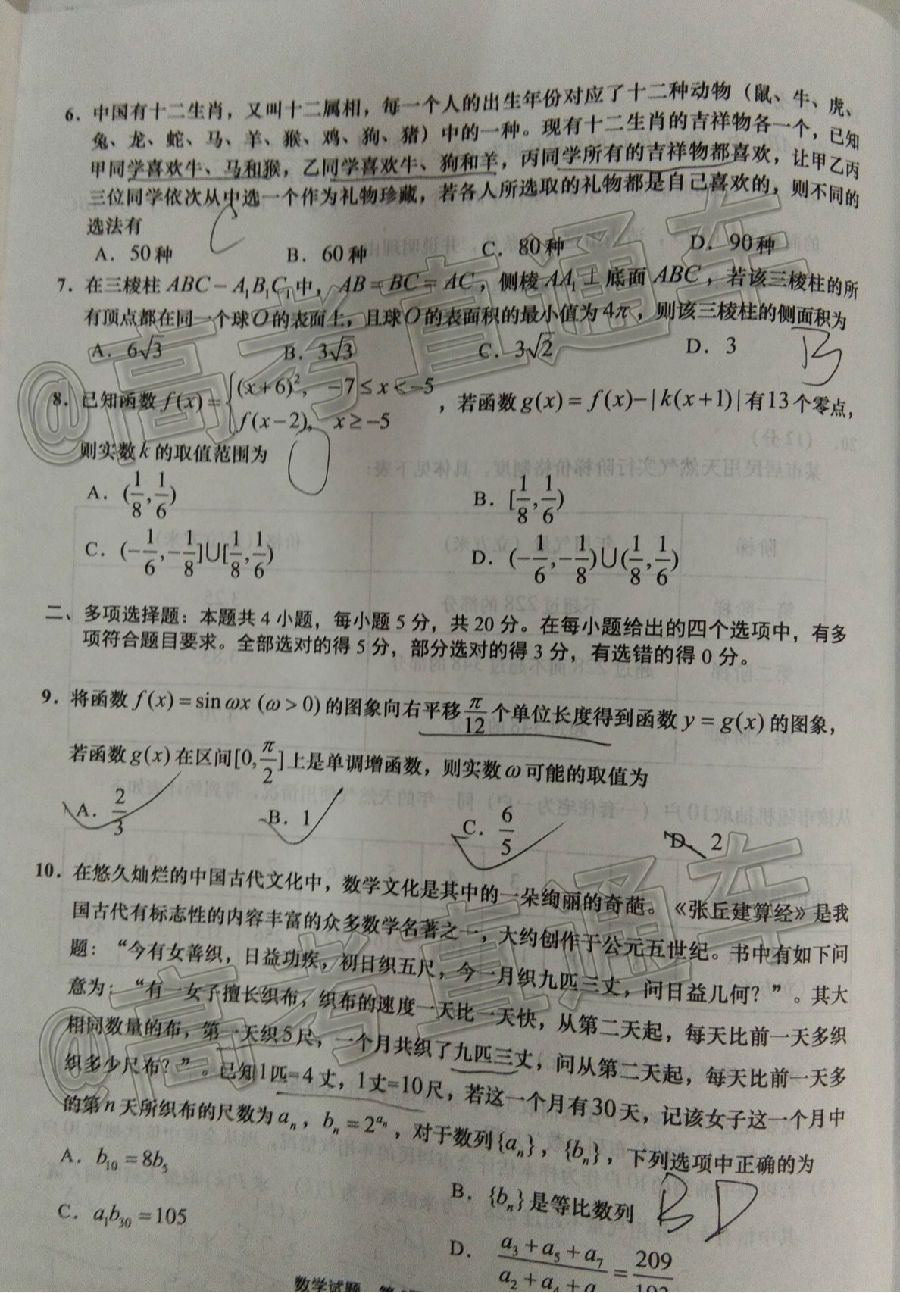 6．中国有十二生肖，又叫十二属相，每一个人的出生年份对应了十二种动物（鼠、牛、虎、
兔、龙、蛇、马、羊、猴、鸡、狗、猪）中的一种。现有十二生肖的吉祥物各一个，已知
甲同学喜欢牛、马和猴，乙同学喜欢牛、狗和羊，丙同学所有的吉祥物都喜欢，让甲乙丙
三位同学依次从中选一个作为礼物珍藏，若各人所选取的礼物都是自己喜欢的，则不同的
选法有 C
A．50种 B．60种 C．80种 D．90种
7．在三棱柱ABC－A₁B₁C₁中，AB＝BC＝AC，侧棱AA₁⊥底面ABC，若该三棱柱的所
有顶点都在同一个球O的表面上，且球O的表面积的最小值为4π，则该三棱柱的侧面积为
A．6√3 B．3√3 C．3√2 D．3 B
8．已知函数f(x)={(x+6)², －7≤x<－5
f(x－2), x≥－5 ，若函数g(x)＝f(x)－|k(x+1)|有13个零点，
则实数k的取值范围为
A．(1/8,1/6) B．[1/8,1/6)
C．(－1/6,－1/8]∪[1/8,1/6) D．(－1/6,－1/8)∪(1/8,1/6)
二、多项选择题：本题共4小题，每小题5分，共20分。在每小题给出的四个选项中，有多
项符合题目要求。全部选对的得5分，部分选对的得3分，有选错的得0分。
9．将函数f(x)＝sin ωx (ω＞0)的图象向右平移π/12个单位长度得到函数y＝g(x)的图象，
若函数g(x)在区间[0,π/2]上是单调增函数，则实数ω可能的取值为
A．2/3 B．1 C．6/5 D．2
10．在悠久灿烂的中国古代文化中，数学文化是其中的一朵绚丽的奇葩。《张丘建算经》是我
国古代有标志性的内容丰富的众多数学名著之一，大约创作于公元五世纪。书中有如下问
题：“今有女善织，日益功疾，初日织五尺，今一月织九匹三丈，问日益几何？”。其大
意为：“有一女子擅长织布，织布的速度一天比一天快，从第二天起，每天比前一天多织
相同数量的布，第一天织5尺，一个月共织了九匹三丈，问从第二天起，每天比前一天多
织多少尺布？”。已知1匹=4丈，1丈=10尺，若这一个月有30天，记该女子这一个月中
的第n天所织布的尺数为aₙ，bₙ＝2^{aₙ}，对于数列{aₙ}，{bₙ}，下列选项中正确的为
A．b₁₀＝8b₅ B．{bₙ}是等比数列 BD
C．a₁b₃₀＝105 D．(a₃＋a₅＋a₇)/(a₂＋a₄＋a)＝209/
数学试题
@高考直通车
@高考直通车